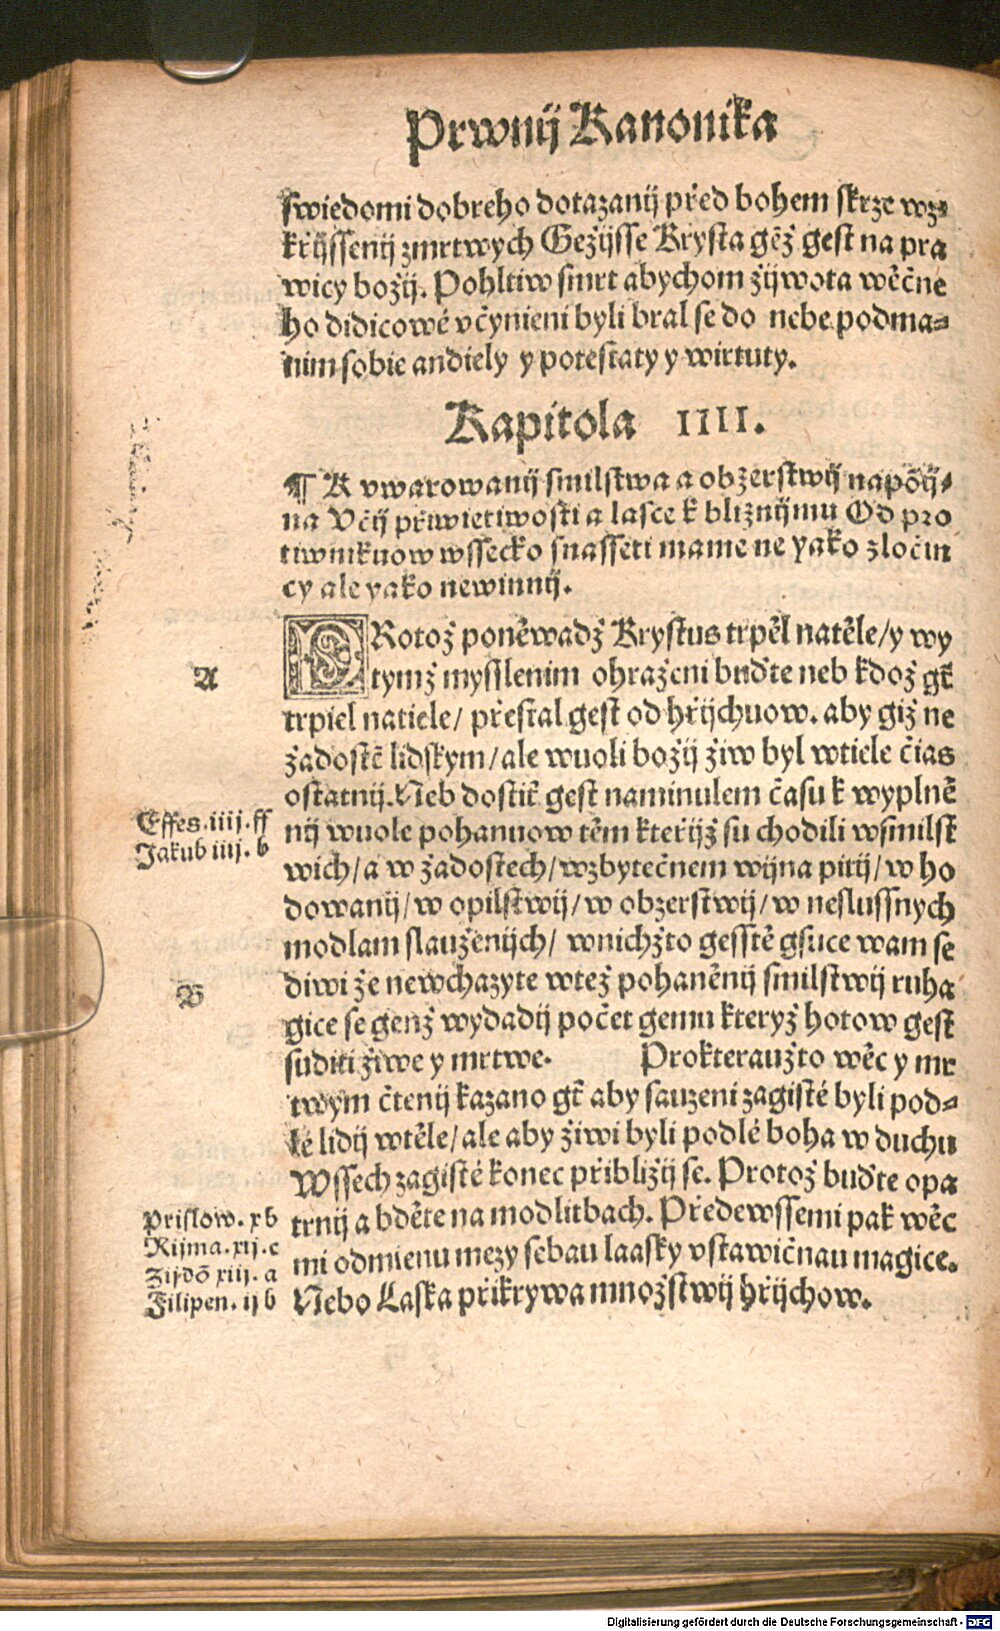 Prwnij Kanonika
swiedomi dobreho dotazanij před bohem skrze wz-
křijssenij zmrtwych Gežijsse Krysta gēž gest na pra
wicy božij. Pohltiw smrt abychom žijwota wěčne
ho didicowé včynieni byli bral se do nebe podma-
nim sobie andiely y potestaty y wirtuty.
Kapitola IIII.
¶ K vwarowanij smilstwa a obžerstwij napōij-
na Včij přiwietiwosti a lasce k bližnijmu Od pro
tiwnikuow wssecko snasseti mame ne yako zločin
cy ale yako newinnij.
PRotož poněwadž Krystus trpěl natěle/ y wy
tymž myslenim ohraženi buďte neb kdož gt̄
trpiel natiele/ přestal gest od hřijchuow. aby giž ne
žadostē lidskym/ ale wuoli božij žiw byl wtiele čias
ostatnij. Neb dostit̄ gest naminulem času k wyplně
nij wuole pohanuow těm kteřijž su chodili wsmilst
wich/ a w žadostech/ wzbytečnem wijna pitij/ w ho
dowanij/ w opilstwij/ w obžerstwij/ w neslussnych
modlam slauženijch/ wnichžto gesstě gsuce wam se
diwi že newchazyte wtež pohaněnij smilstwij ruha
gice se genž wydadij počet gemu kteryž hotow gest
suditi žiwe y mrtwe. Prokteraužto wěc y mr
twym čtenij kazano gt̄ aby sauzeni zagisté byli pod-
lé lidij wtěle/ ale aby žiwi byli podlé boha w duchu
Wssech zagisté konec přibližij se. Protož buďte opa
trnij a bděte na modlitbach. Předewssemi pak wěc
mi odmienu mezy sebau laasky vstawičnau magice.
Nebo Laska přikrywa množstwij hřijchow.
A
Effes. iiij. ff
Jakub iiij. b
B
Prislow. xb
Rijma. xij. c
Zijdō xiij. a
Filipen. ij b
Digitalisierung gefördert durch die Deutsche Forschungsgemeinschaft - DFG